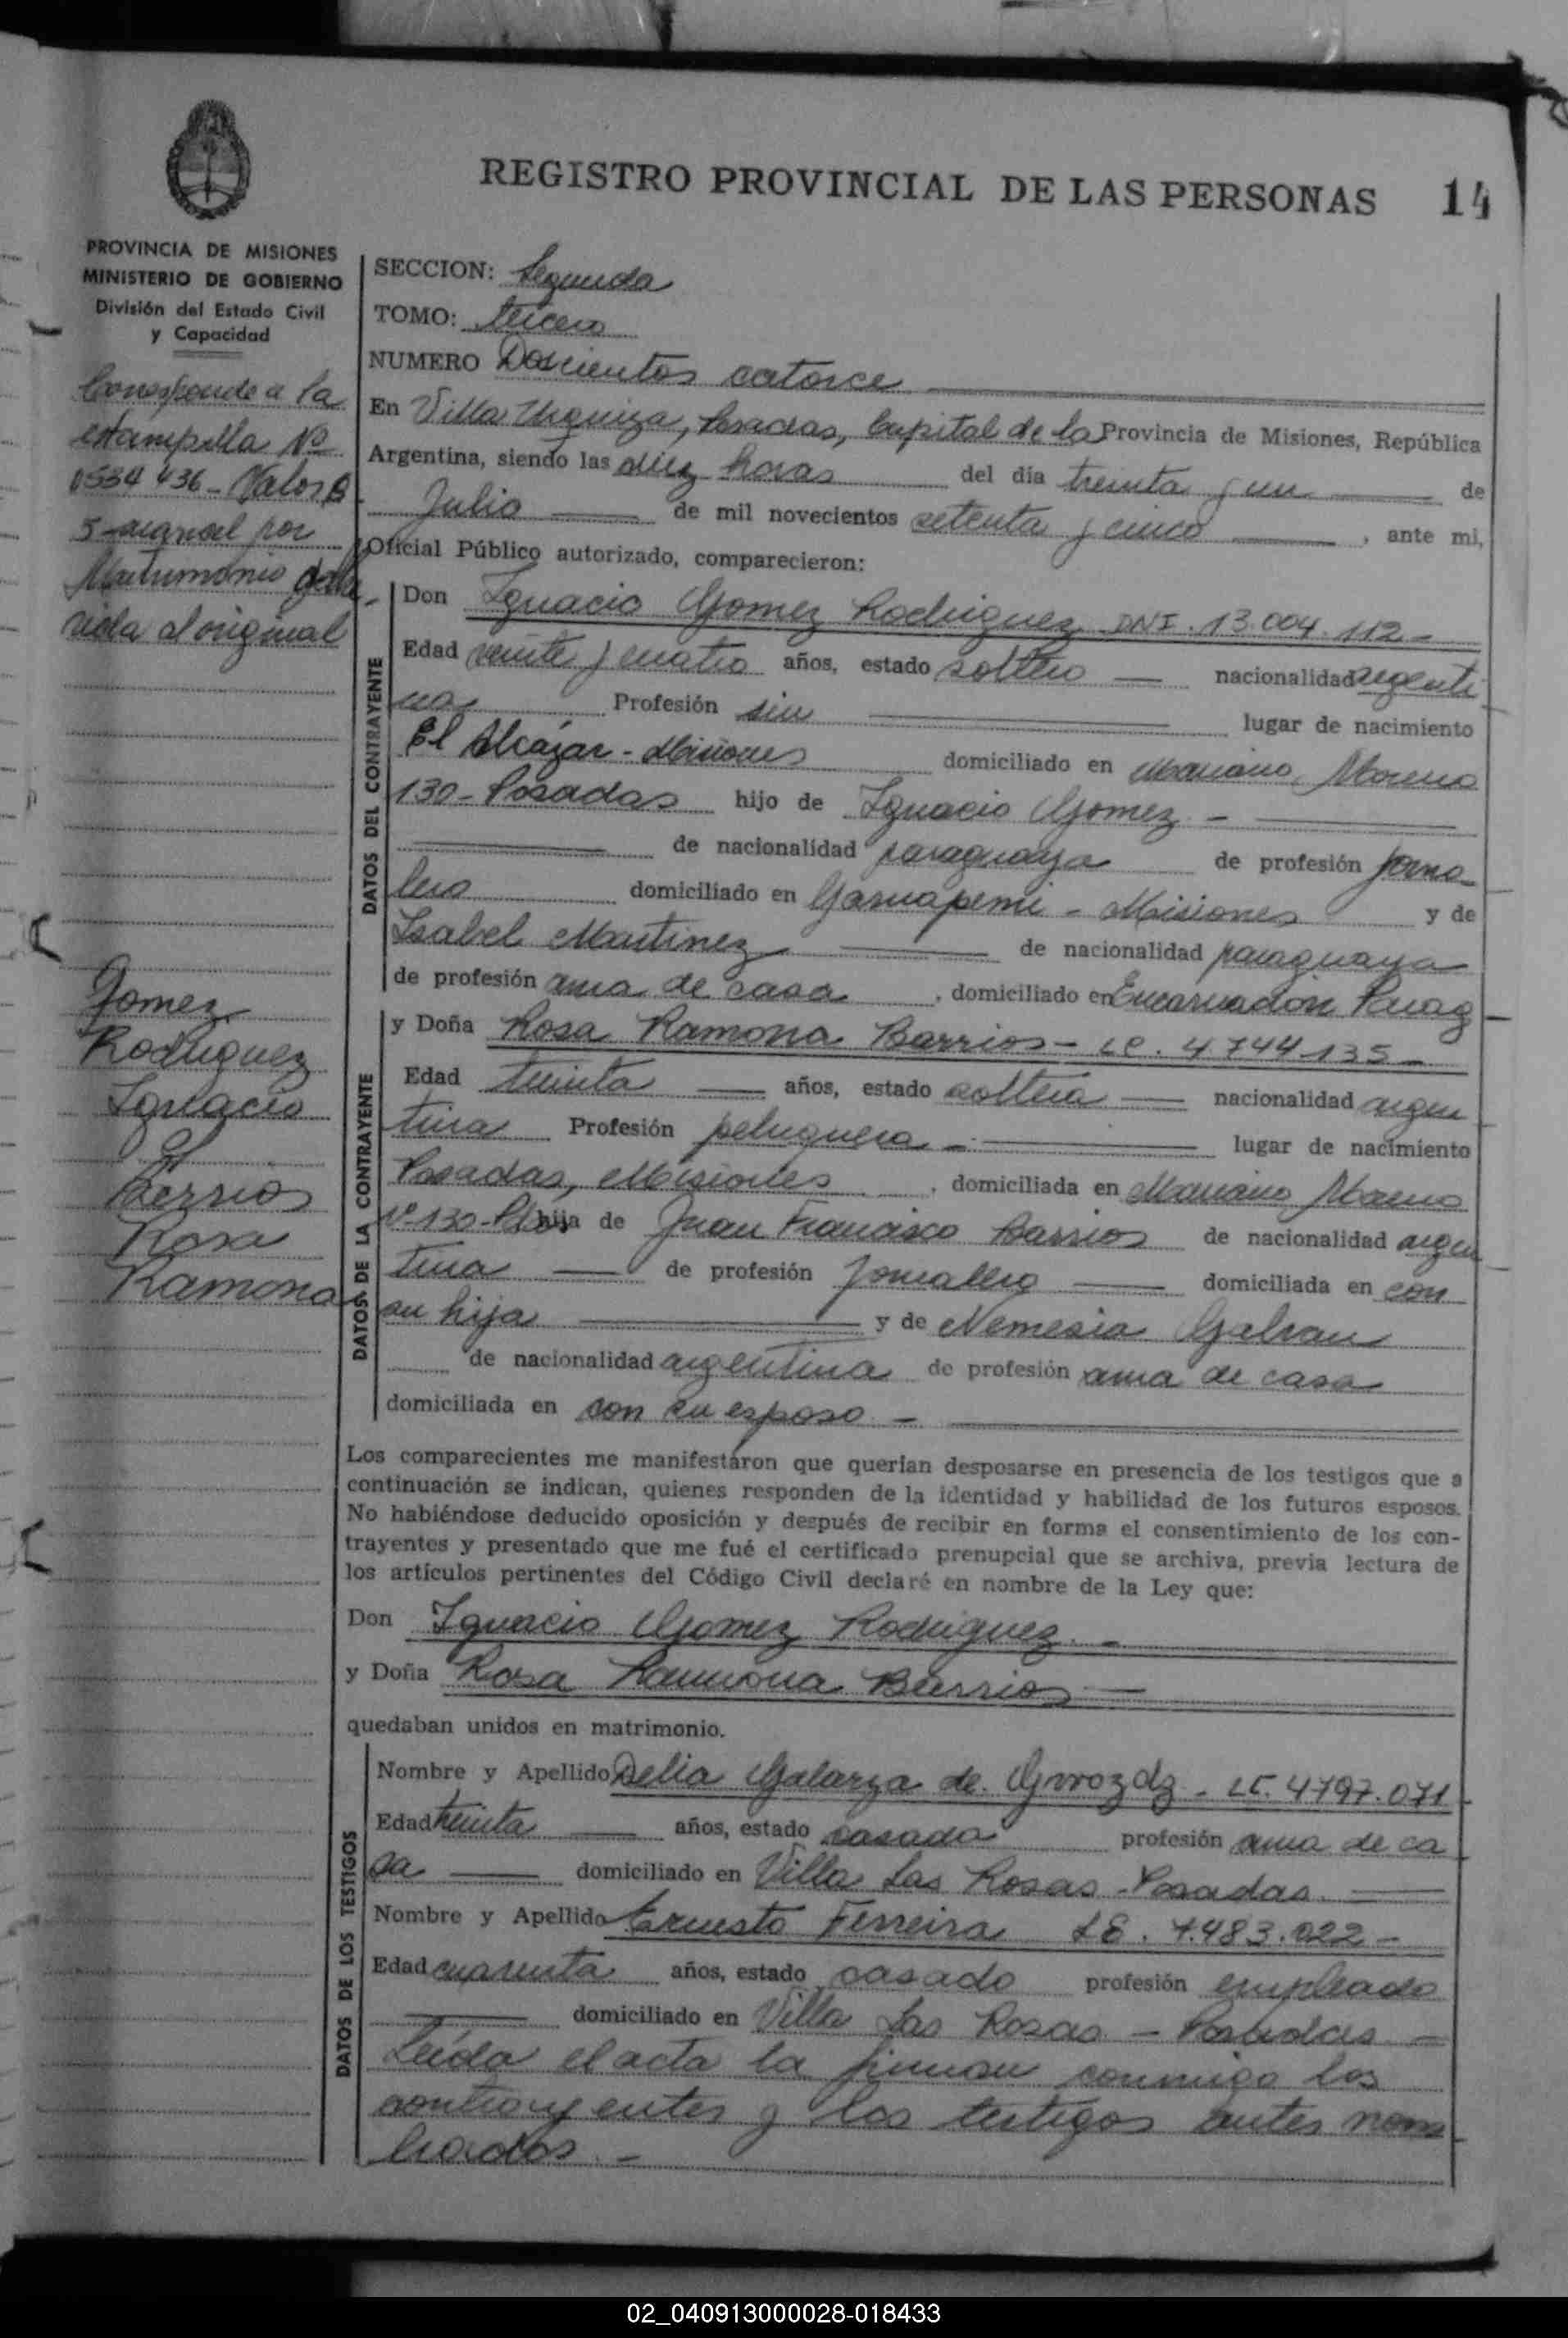 REGISTRO PROVINCIAL DE LAS PERSONAS 14
PROVINCIA DE MISIONES
MINISTERIO DE GOBIERNO
División del Estado Civil
y Capacidad
Corresponde a la
estampilla Nº
0534 436 - Valor $
5- por
Matrimonio
al original
Gomez
Rodriguez
Ignacio
y
Berrios
Rosa
Ramona
SECCION: Segunda
TOMO: tercero
NUMERO Doscientos catorce
En Villa Urquiza, Posadas, Capital de la Provincia de Misiones, República
Argentina, siendo las diez horas del día treinta y un de
Julio de mil novecientos setenta y cinco, ante mi,
Oficial Público autorizado, comparecieron:
DATOS DEL CONTRAYENTE
Don Ignacio Gomez Rodriguez DNI. 13.004.112-
Edad veinte y cuatro años, estado soltero nacionalidad argenti
na Profesión sin lugar de nacimiento
El Alcázar - Misiones domiciliado en Mariano Moreno
130 - Posadas hijo de Ignacio Gomez -
de nacionalidad paraguaya de profesión jorna
lero domiciliado en Garuapemi - Misiones y de
Isabel Martinez de nacionalidad paraguaya
de profesión ama de casa, domiciliado en Encarnación Parag
DATOS DE LA CONTRAYENTE
y Doña Rosa Ramona Barrios - LC. 4744135-
Edad treinta años, estado soltera nacionalidad argen
tina Profesión peluquera - lugar de nacimiento
Posadas, Misiones, domiciliada en Mariano Moreno
Nº 130-Pdas hija de Juan Francisco Barrios de nacionalidad argen
tina de profesión jornalero domiciliada en con
su hija y de Nemesia Galvan
de nacionalidad argentina de profesión ama de casa
domiciliada en con su esposo -
Los comparecientes me manifestaron que querían desposarse en presencia de los testigos que a
continuación se indican, quienes responden de la identidad y habilidad de los futuros esposos.
No habiéndose deducido oposición y después de recibir en forma el consentimiento de los con-
trayentes y presentado que me fué el certificado prenupcial que se archiva, previa lectura de
los artículos pertinentes del Código Civil declaré en nombre de la Ley que:
Don Ignacio Gomez Rodriguez. -
y Doña Rosa Ramona Barrios -
quedaban unidos en matrimonio.
DATOS DE LOS TESTIGOS
Nombre y Apellido Delia Galarza de Gwozdz - LC. 4797.071
Edad treinta años, estado casada profesión ama de ca
sa domiciliado en Villa Las Rosas - Posadas.
Nombre y Apellido Ernesto Ferreira LE. 7.483.022 -
Edad cuarenta años, estado casado profesión empleado
domiciliado en Villa Las Rosas - Posadas -
Leída el acta la firman conmigo los
contrayentes y los testigos antes nom
brados. -
02_040913000028-018433